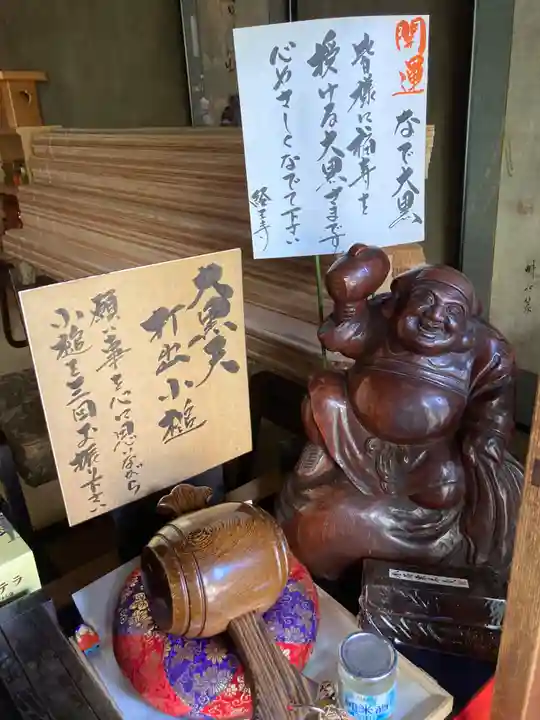 開運
なで大黒
皆様に福寿を
授ける大黒さまです
心やさしくなでて下さい
経王寺
大黒天
打出小槌
願い事を心に思いながら
小槌を三回お振り下さい